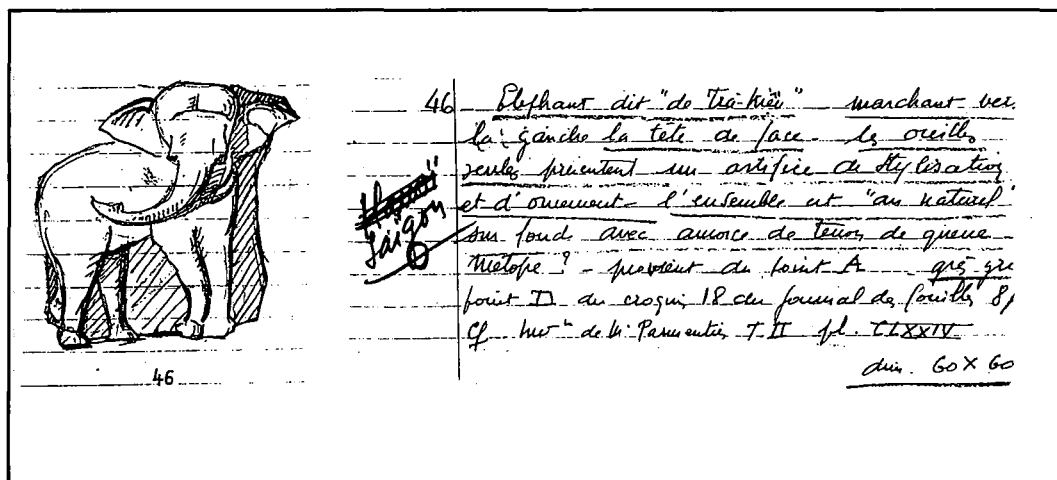 46 Eléphant dit "de Trà-kiêu" marchant vers
la gauche la tête de face - les oreilles
seules présentent un artifice de stylisation
et d'ornement - l'ensemble est "au naturel"
sur fond avec amorce de tenon de queue -
Métope ? - provient du point A grès gris
point D du croquis 18 du journal des fouilles
Cf. Invre de Mr Parmentier T II pl. CLXXIV
dim. 60 X 60
Saïgon
46